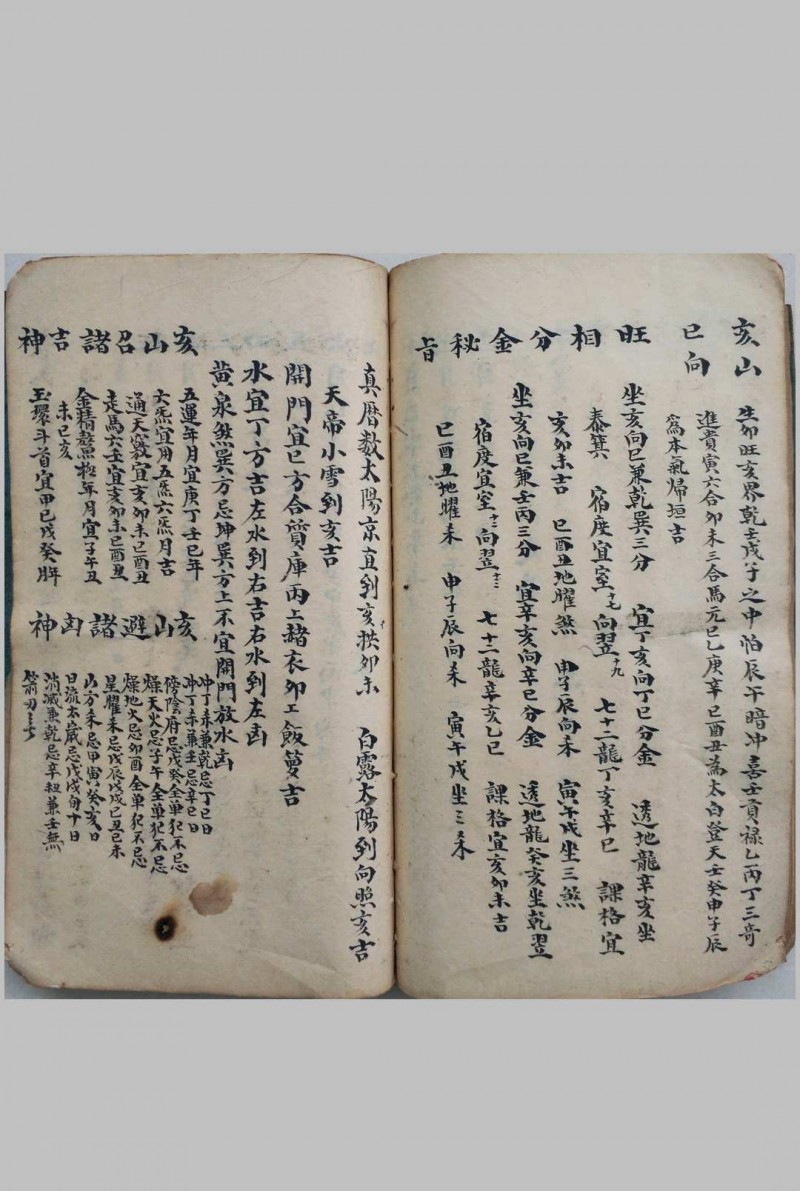 亥山巳向
生卯旺亥界乾壬戌子之中怕辰午暗冲喜壬貢禄乙丙丁三竒
進貴寅六合卯未三合馬元巳乙庚辛巳酉丑為太白登天壬癸申子辰
爲本氣歸垣吉
旺相分金秘旨
坐亥向巳兼乾巽三分 宜丁亥向丁巳分金 透地龍辛亥坐
泰箕 宿度宜室十七向翌十九 七十二龍丁亥辛巳 課格宜
亥卯未吉 巳酉丑地曜煞 申子辰向未 寅午戌坐三煞
坐亥向巳兼壬丙三分 宜辛亥向辛巳分金 透地龍癸亥坐乾翌
宿度宜室十三向翌十三 七十二龍辛亥乙巳 課格宜亥卯未吉
巳酉丑地曜未 申子辰向未 寅午戌坐三未
真曆数太陽京直到亥拱卯未 白露太陽到向照亥吉
天帝小雪到亥吉
開門宜巳方合質庫丙上赭衣卯工飯蔓吉
水宜丁方吉左水到右吉右水到左凶
黄泉煞巽方忌坤巽方上不宜開門放水凶
亥山召諸吉神
五運年月宜庚丁壬巳年
六炁宜用五炁六炁月吉
通天竅宜亥卯未巳酉丑
走馬六壬宜亥卯未巳酉丑
金精鰲極年月宜子午丑
未巳亥
玉環斗首宜甲巳戊癸年
亥山避諸凶神
冲丁未兼乾忌丁巳日
冲丁未兼壬忌辛巳日
傍陰府忌戊癸全单犯不忌
燥天火忌子午全单犯不忌
燥地火忌卯酉全单犯不忌
星曜未忌戊辰戊戌巳丑巳未
山方未忌甲寅癸亥日
日流太歲忌戊戌旬十日
消滅兼乾忌辛 兼壬無
箭刃